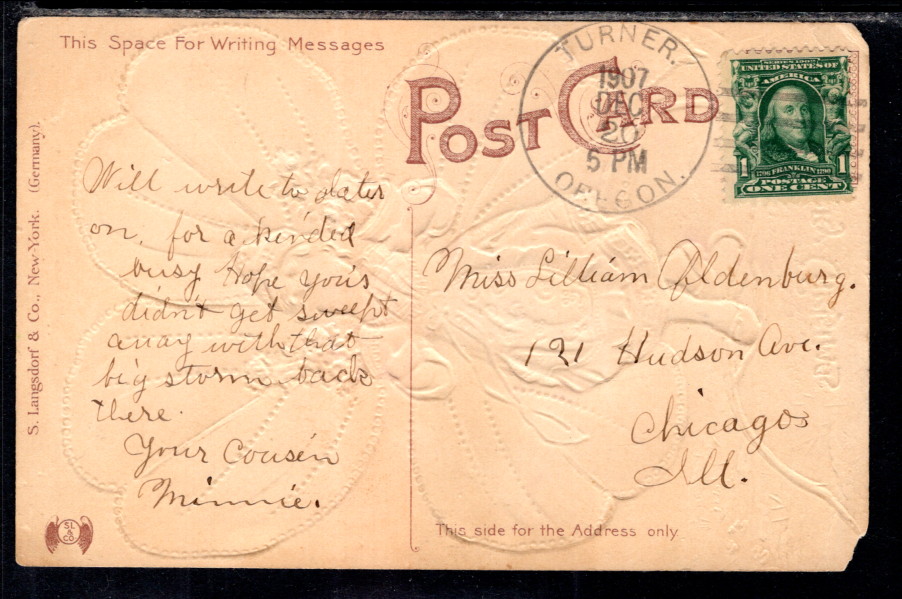 This Space For Writing Messages
POST CARD
TURNER.
1907
DEC
20
5 PM
OREGON.
SERIES 1902
UNITED STATES OF
AMERICA
1 1706 FRANKLIN 1790 1
POSTAGE
ONE CENT
S. Langsdorf & Co., New-York. (Germany).
Will write to later
on, for a kinded
busy Hope you's
didn't get swept
away with that
big storm back
there.
Your Cousin
Minnie.
Miss Lillian Oldenburg.
121 Hudson Ave.
Chicago
Ill.
This side for the Address only
S.L.
& Co